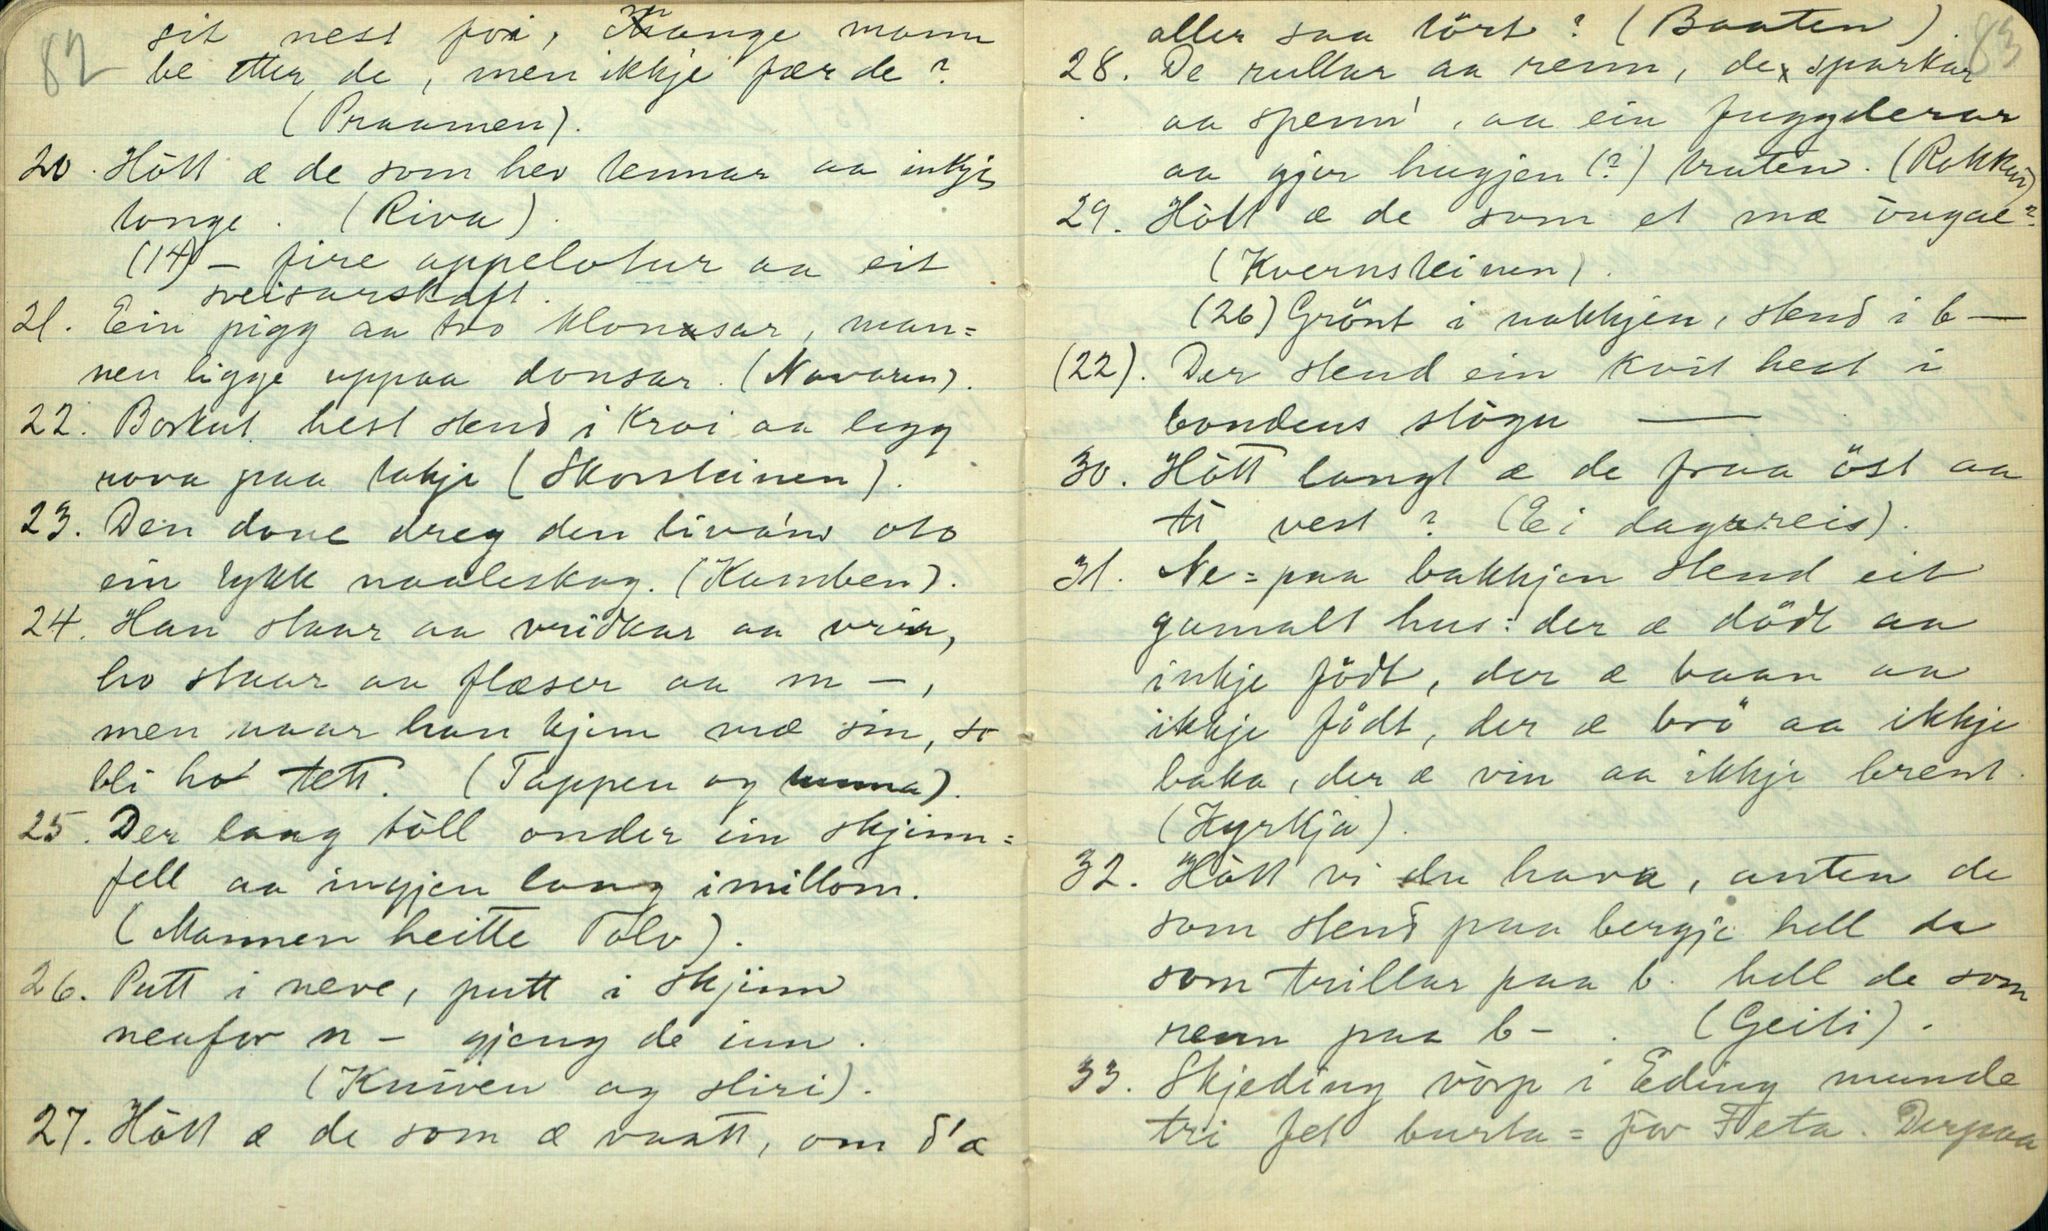 82
sit nest foi, mange mann
be etter de, men ikkje fær de?
(Praamen).
20. Hôtt æ de som hev tennar aa inkje
tonge. (Riva)
(14) – fire appelotur aa eit
sveisarskaft.
21. Ein pigg aa tvo klonsar, man=
nen ligge uppaa donsar. (Navaren).
22. Borkut hest stend i kroi aa legg
rova paa takje (Skorsteinen).
23. Den doue dreg den liváno oto
ein tykk naaleskog. (Kamben).
24. Han staar aa vridkar aa vrir,
ho staar aa flæser aa m –,
men naar han kjem mæ sin, so
bli ho tett. (Tappen og tunna).
25. Der laag tôll onder ein skjinn=
fell aa ingjen laag imillom.
(Mannen heitte Tolv).
26. Putt i neve, putt i skjinn
neafor n – gjeng de inn.
(Kniven og sliri).
27. Hôtt æ de som æ vaatt, om d'æ
83
aller saa tört? (Baaten).
28. De rullar aa renn, de sparkar
aa spenn', aa ein fuggderar
aa gjer hugjen (?) truten. (Rokken)
29. Hôtt æ de som et mæ öugae?
(Kvernsteinen).
(26) Grönt i nakkjen, stend i b —
(22). Der stend ein kvit hest i
bondens stôgu —
30. Hôtt langt æ de fraa öst aa
ti vest? (Ei dagsreis).
31. Ne=paa bakkjen stend eit
gamalt hus: der æ dödt aa
inkje födt, der æ baan aa
ikkje födt, der æ brö aa ikkje
baka, der æ vin aa ikkje brent.
(Kyrkja).
32. Hôtt vi du hava, anten de
som stend paa bergje hell de
som trillar paa b. hell de som
renn paa b –. (Geiti).
33. Skjeding vôrp i Eding munde
tri fet burta = for Feta. Derpaa